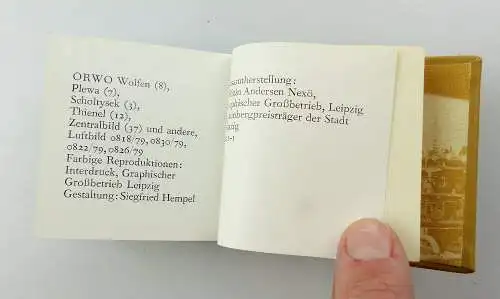 ORWO Wolfen (8),
Plewa (7),
Scholtysek (3),
Thienel (12),
Zentralbild (37) und andere,
Luftbild 0818/79, 0830/79,
0822/79, 0826/79
Farbige Reproduktionen:
Interdruck, Graphischer
Großbetrieb Leipzig
Gestaltung: Siegfried Hempel
samtherstellung:
Andersen Nexö,
phischer Großbetrieb, Leipzig
nbergpreisträger der Stadt